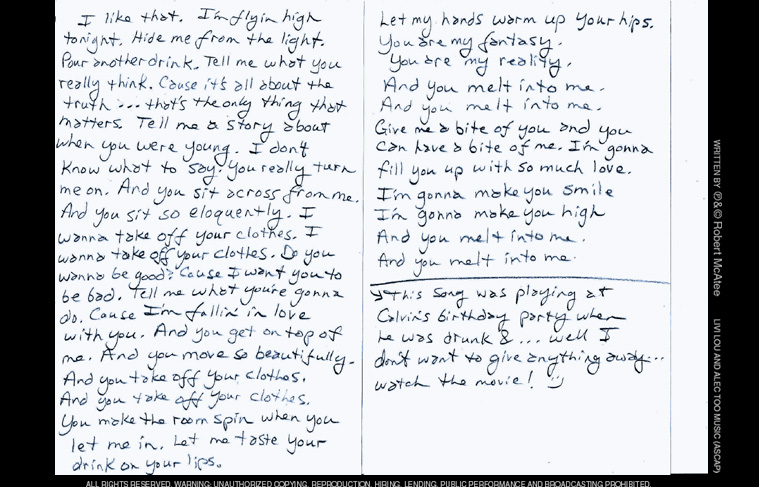 I like that. I'm flyin high
tonight. Hide me from the light.
Pour another drink. Tell me what you
really think. Cause it's all about the
truth... that's the only thing that
matters. Tell me a story about
when you were young. I don't
know what to say. You really turn
me on. And you sit across from me.
And you sit so eloquently. I
wanna take off your clothes. I
wanna take off your clothes. Do you
wanna be good? 'Cause I want you to
be bad. Tell me what you're gonna
do. Cause I'm fallin' in love
with you. And you get on top of
me. And you move so beautifully.
And you take off your clothes.
And you take off your clothes.
You make the room spin when you
let me in. Let me taste your
drink on your lips.
Let my hands warm up your hips.
You are my fantasy.
You are my reality.
And you melt into me.
And you melt into me.
Give me a bite of you and you
can have a bite of me. I'm gonna
fill you up with so much love.
I'm gonna make you smile
I'm gonna make you high
And you melt into me.
And you melt into me.
This song was playing at
Calvin's birthday party when
he was drunk &... well I
don't want to give anything away...
watch the movie! :)
WRITTEN BY ℗ & © Robert McAtee
LIVI LOU AND ALEC TOO MUSIC (ASCAP)
ALL RIGHTS RESERVED. WARNING: UNAUTHORIZED COPYING, REPRODUCTION, HIRING, LENDING, PUBLIC PERFORMANCE AND BROADCASTING PROHIBITED.